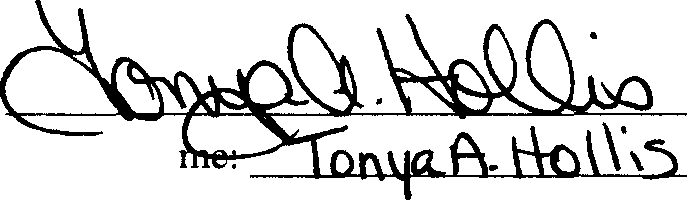 Tonya A. Hollis
me: Tonya A. Hollis